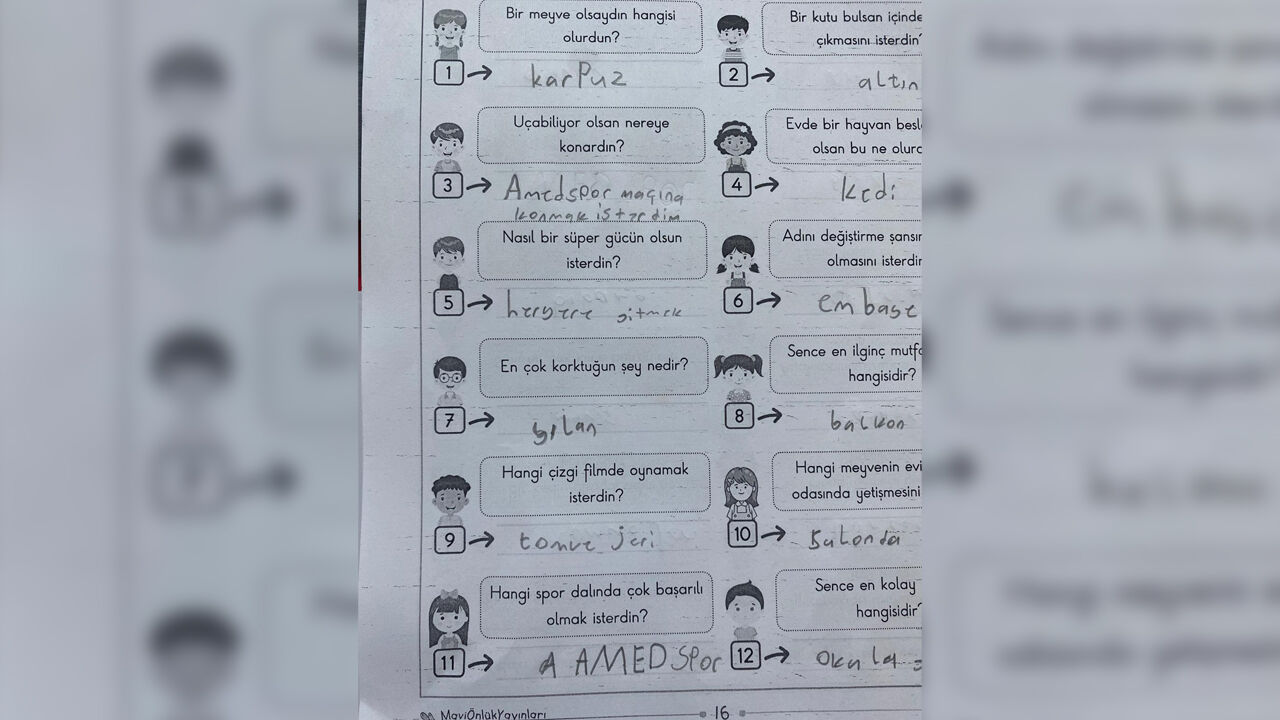 Bir meyve olsaydın hangisi
olurdun?
1
karpuz
Bir kutu bulsan içinde
çıkmasını isterdin
2
altın
Uçabiliyor olsan nereye
konardın?
3
Amedspor maçına
konmak isterdim
Evde bir hayvan besl
olsan bu ne olurd
4
kedi
Nasıl bir süper gücün olsun
isterdin?
5
heryere gitmek
Adını değiştirme şansın
olmasını isterdin
6
En çok korktuğun şey nedir?
7
yılan
Sence en ilginç mutfa
hangisidir?
8
balkon
Hangi çizgi filmde oynamak
isterdin?
9
tomve jeri
Hangi meyvenin evi
odasında yetişmesini
10
Salonda
Hangi spor dalında çok başarılı
olmak isterdin?
11
A AMEDSPor
Sence en kolay
hangisidir
12
okula
MaviÖnlükYayınları
16